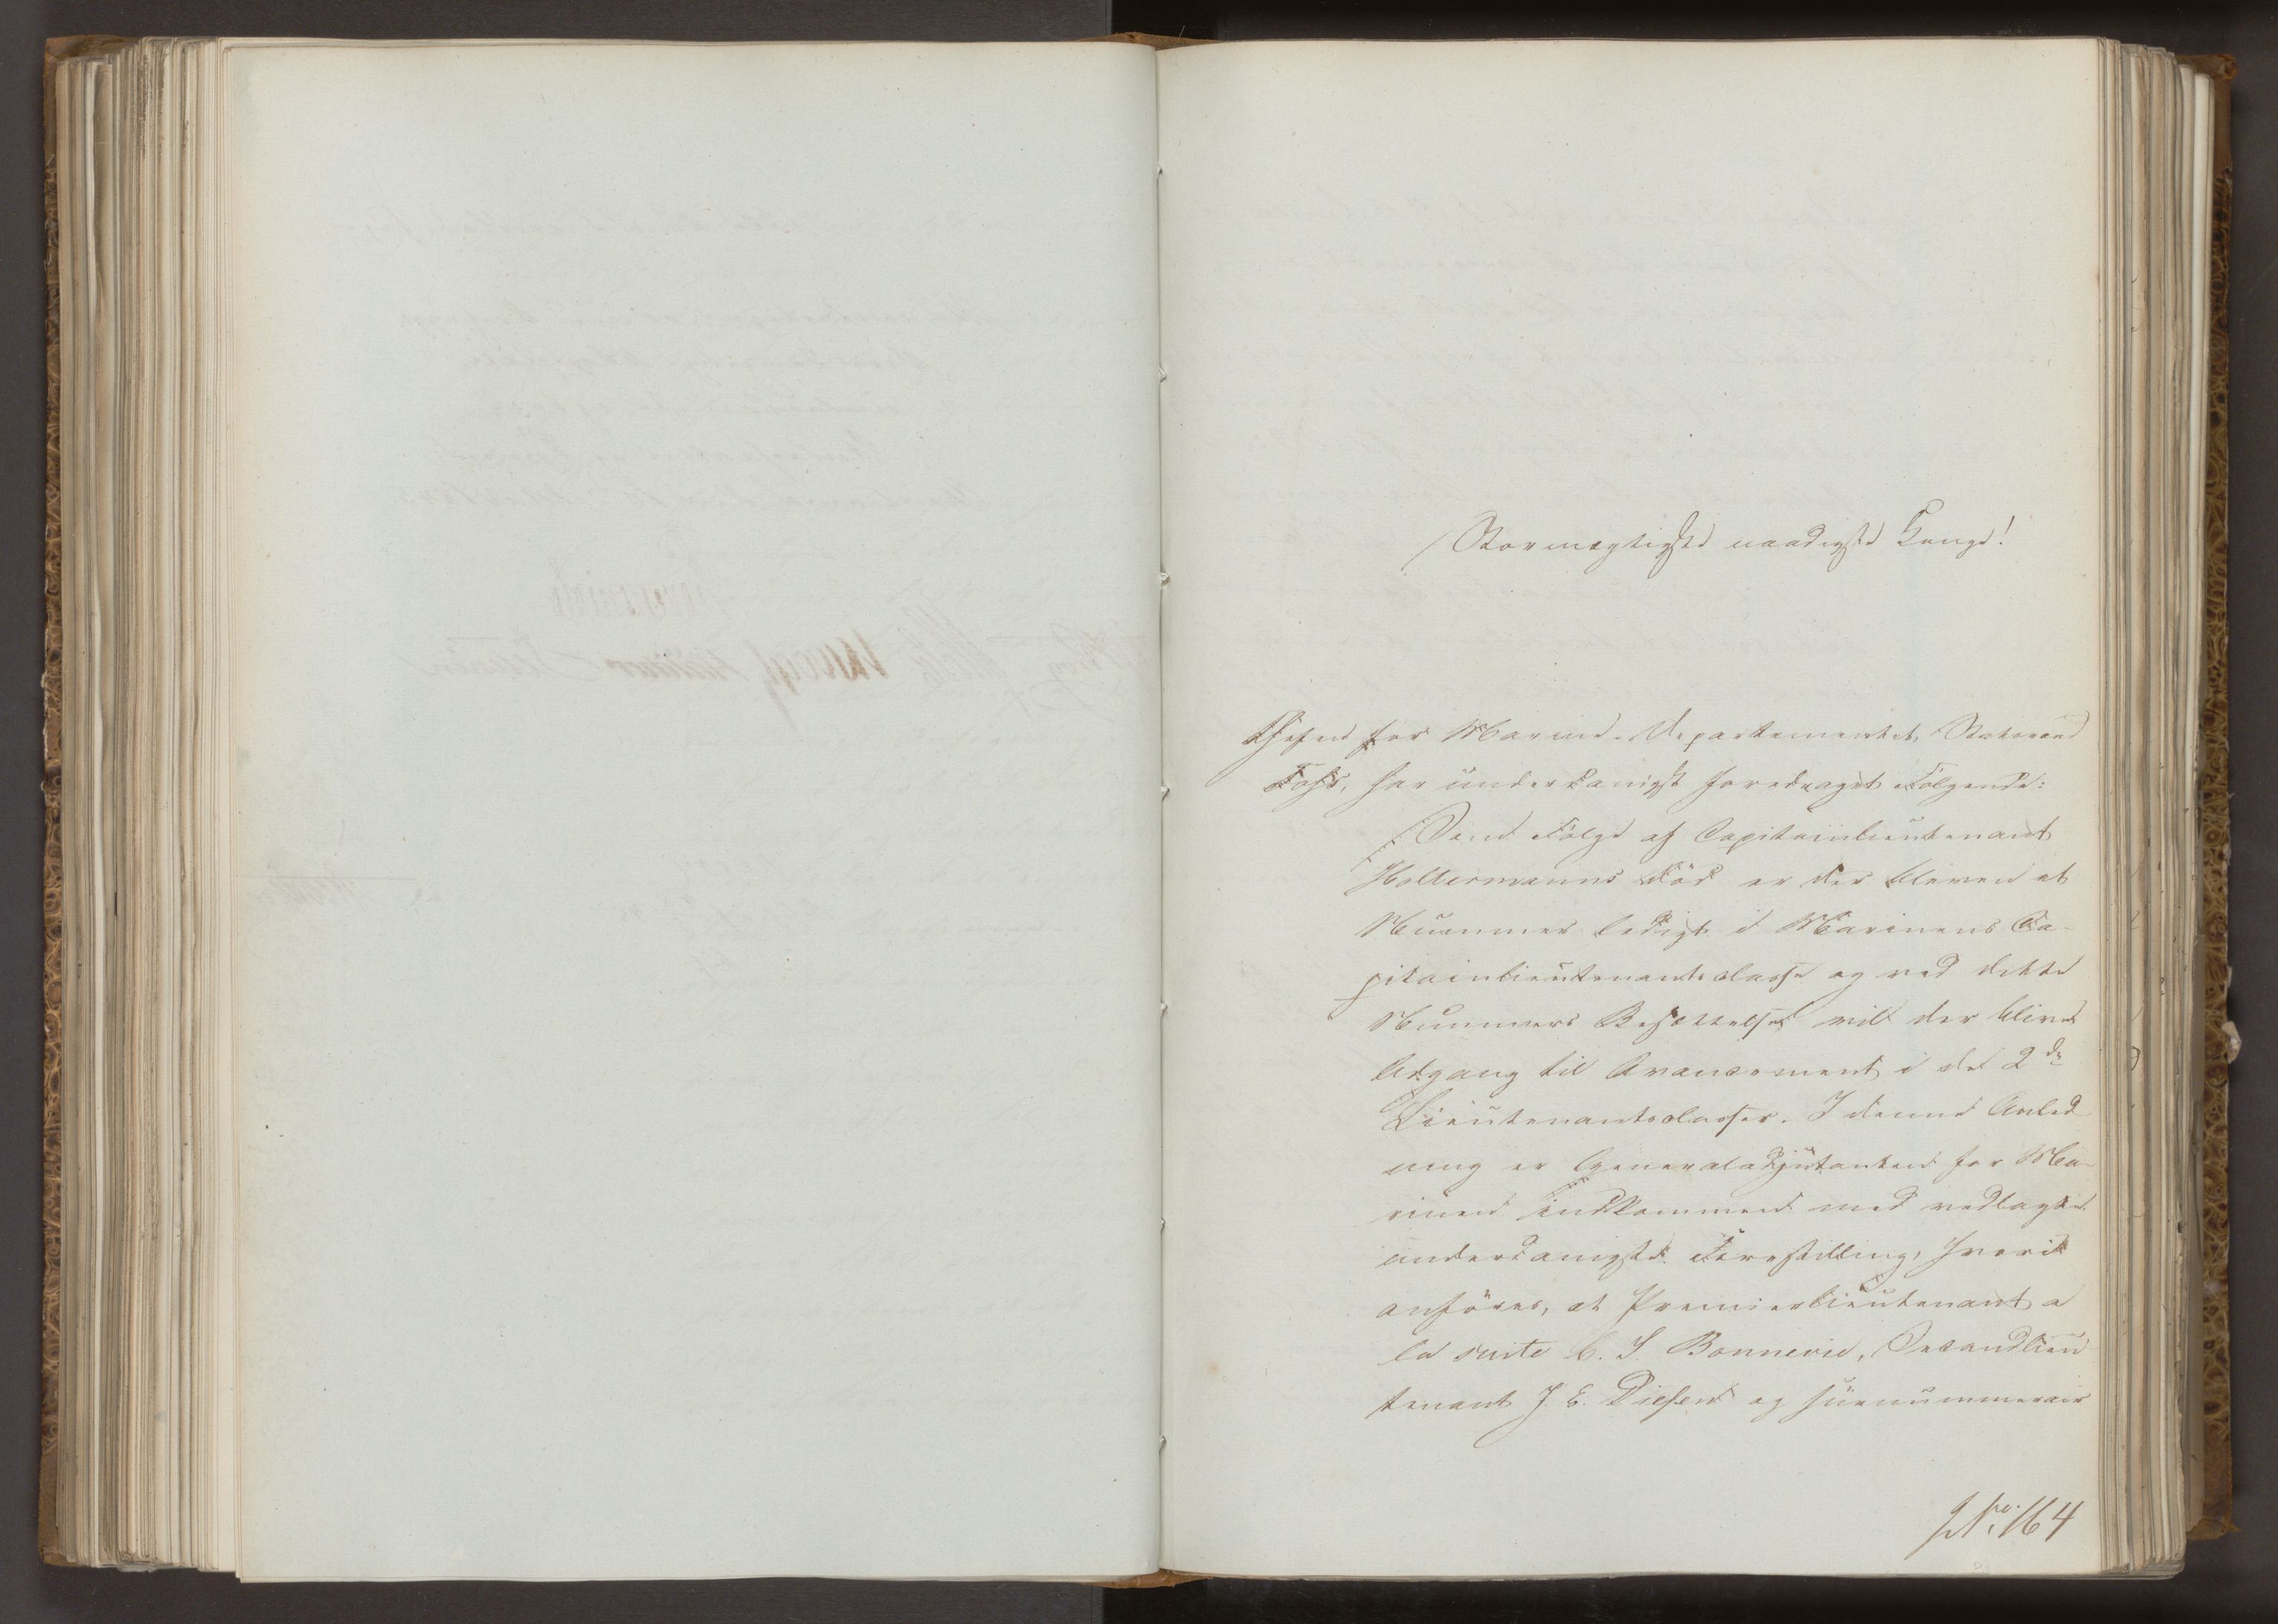 Stormægtigste naadigste Konge!
Chefen for Marine-Departementet, Statsraad
Foss, har underdanigst foredraget Følgende:
Som Følge af Capitainlieutenant
Holtermanns Död er der bleven et
Nummer ledigt i Marinens Ca-
pitainlieutenantsclasse og ved dette
Nummers Besættelse vil der blive
Adgang til Avancement i de 2de
Lieutenantsclasser. I denne Anled
ning er Generaladjutanten for Ma-
rinen indkommen med vedlagte
underdanigste Forestilling, hvori
anföres, at Premierlieutenant a
la suite C. S. Bonnevie, Secondlieu
tenant J. E. Diesen og surnummerair
No. 164